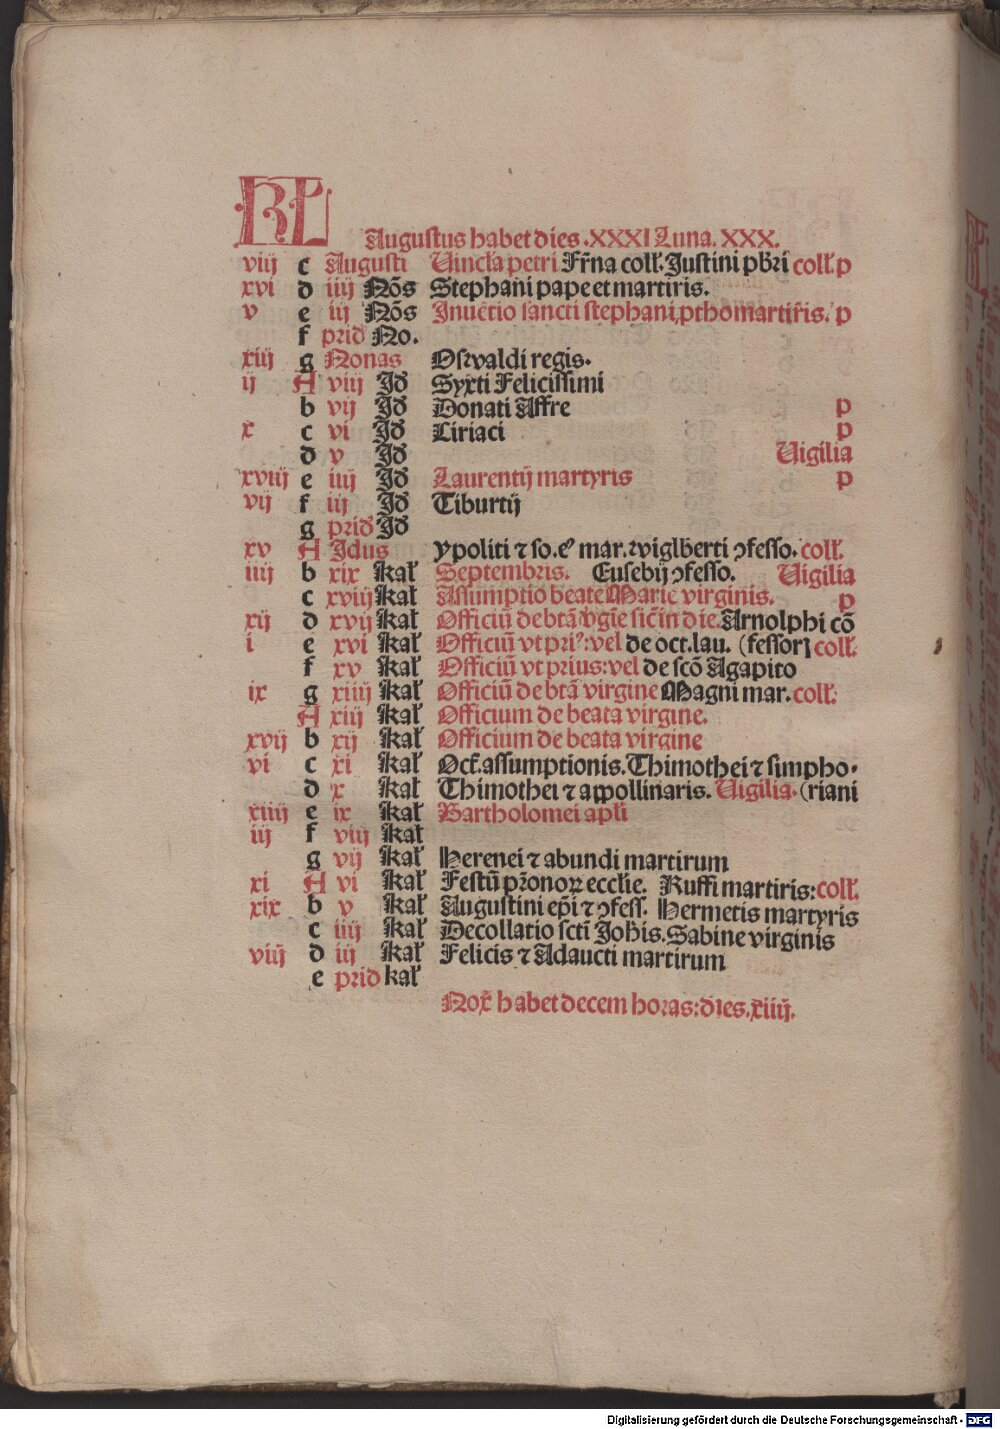 KL
Augustus habet dies .XXXI Luna. XXX.
viij c Augusti Uincla petri Fr̄na coll̄. Justini pb̄ri coll̄. p
xvi d iiij Nōs Stephani pape et martiris.
v e iij Nōs Inuētio sancti stephani, ꝓthomartir̄is. p
f prid No.
xiij g Nonas Oswaldi regis.
ij A viij Jd Syxti Felicissimi
b vij Jd Donati Affre p
x c vi Jd Ciriaci p
d v Jd Uigilia
xviij e iiij Jd Laurentij martyris p
vij f iij Jd Tiburtij
g prid Jd
xv A Jdus ypoliti ⁊ so. eꝰ mar. ⁊ wiglb̄erti ꝯfesso. coll̄.
iiij b xix kal̄ Septembris. Eusebij ꝯfesso. Uigilia
c xviij kal̄ Assumptio beate Marie virginis. p
xij d xvij kal̄ Officiū de btā v̄gīe sic̄ in die. Arnolphi cō
i e xvi kal̄ Officiū vt priꝰ: vel de oct. lau. (fessor) coll̄.
f xv kal̄ Officiū vt prius: vel de scō Agapito
ix g xiiij kal̄ Officiū de btā virgine Magni mar. coll̄.
A xiij kal̄ Officium de beata virgine.
xvij b xij kal̄ Officium de beata virgine
vi c xi kal̄ Oct̄. assumptionis. Thimothei ⁊ simpho.
d x kal̄ Thimothei ⁊ appollinaris. Uigilia. (riani
xiiij e ix kal̄ Bartholomei apl̄i
iij f viij kal̄
g vij kal̄ Herenei ⁊ abundi martirum
xi A vi kal̄ Festū pr̄onoꝝ eccl̄ie. Ruffi martiris: coll̄.
xix b v kal̄ Augustini ep̄i ⁊ ꝯfess. Hermetis martyris
c iiij kal̄ Decollatio sctī Joh̄is. Sabine virginis
viij d iij kal̄ Felicis ⁊ Adaucti martirum
e prid kal̄
Nox̄ habet decem horas: dies. xiiij.
Digitalisierung gefördert durch die Deutsche Forschungsgemeinschaft - DFG